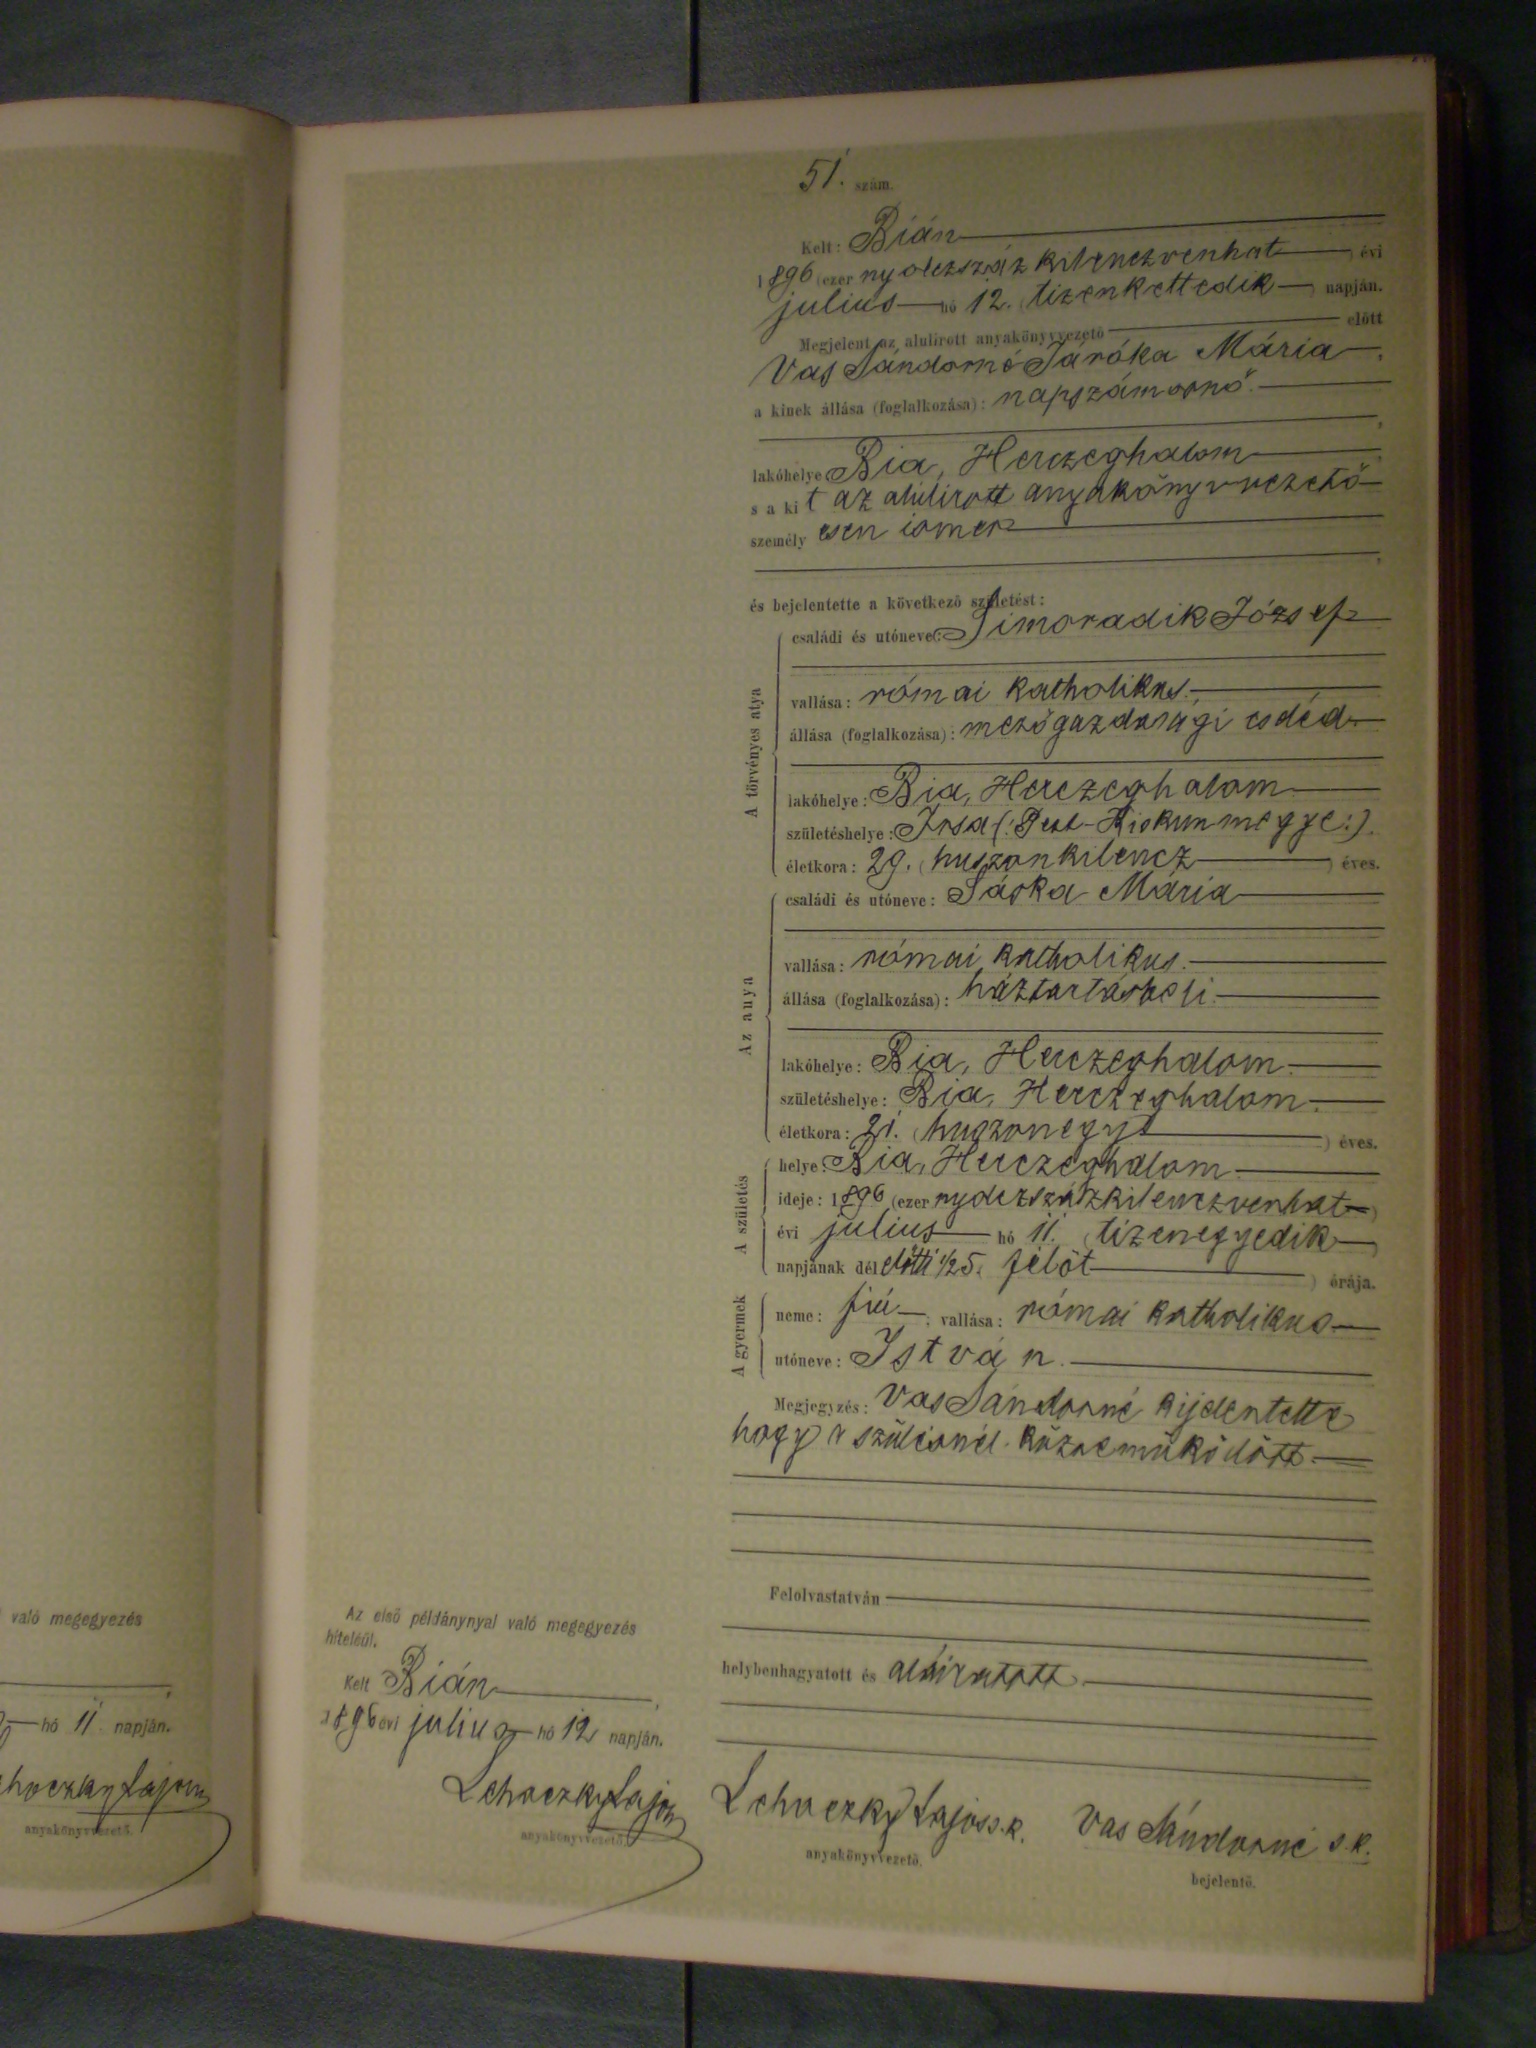 51. szám.
Kelt: Bián
1896 (ezer nyolczszáz kilenczvenhat) évi
julius hó 12. (tizenkettedik) napján.
Megjelent az alulirott anyakönyvvezető előtt
Vas Sándorné Mária,
a kinek állása (foglalkozása): napszámosnő.
lakóhelye Bia, Herczeghalom
s a kit az alulirott anyakönyvvezető
személyesen ismer
és bejelentette a következő születést:
A törvényes atya
családi és utóneve: Simoradik József
vallása: római katholikus.
állása (foglalkozása): mezőgazdasági cseléd
lakóhelye: Bia, Herczeghalom
születéshelye: Irsa (: Pest-Kiskunmegye:).
életkora: 29. (huszonkilencz) éves.
Az anya
családi és utóneve: Sáska Mária
vallása: római katholikus.
állása (foglalkozása): háztartásbeli.
lakóhelye: Bia, Herczeghalom.
születéshelye: Bia, Herczeghalom.
életkora: 21. (huszonegy) éves.
A születés
helye: Bia, Herczeghalom
ideje: 1896 (ezer nyolczszázkilenczvenhat)
évi julius hó 11. (tizenegyedik)
napjának délelőtti 1/2 5. félöt) órája.
A gyermek
neme: fiú; vallása: római katholikus
utóneve: István.
Megjegyzés: Vas Sándorné kijelentette
hogy a szülésnél közreműködött
Felolvastatván
helybenhagyatott és aláiratott.
Lehoczky Lajos s.k. Vas Sándorné s.k.
anyakönyvvezető. bejelentő.
Az első példánynyal való megegyezés
hiteléül.
Kelt Bián
1896 évi julius hó 12 napján.
Lehoczky Lajos
anyakönyvvezető.
való megegyezés
hó 11 napján.
Lajos
anyakönyvvezető.